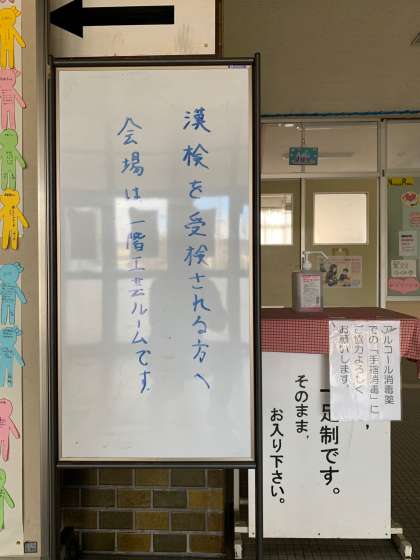 漢検を受検される方へ
会場は一階工芸ルームです
アルコール消毒薬
での「手指消毒」に
ご協力よろしく
お願いします。
一足制です。
そのまま、
お入り下さい。